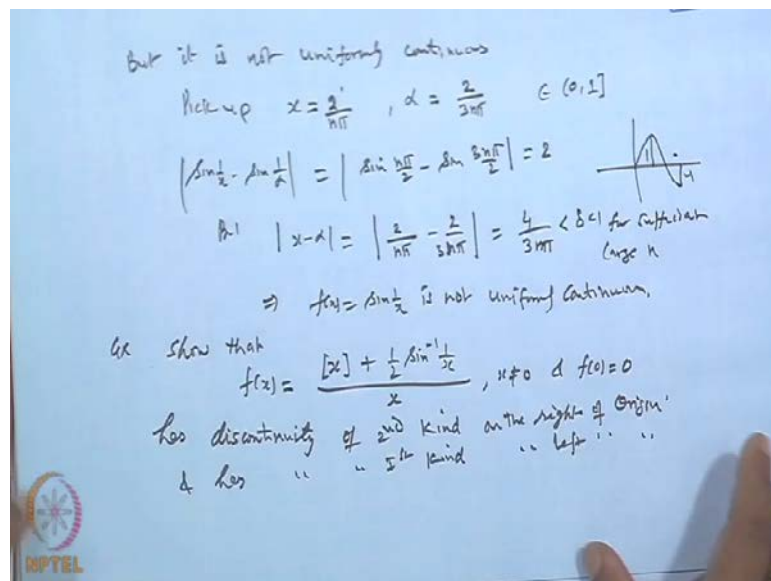 But it is not uniformly continuous
Pick up x = 2/nπ , α = 2/3nπ ∈ (0,1]
|sin 1/x - sin 1/α| = |sin nπ/2 - sin 3nπ/2| = 2
But |x-α| = |2/nπ - 2/3nπ| = 4/3nπ < δ<1 for sufficient
large n
⇒ f(x) = sin 1/x is not uniformly continuous.
Show that
f(x) = ([x] + 1/2 sin⁻¹ 1/x)/x , x≠0 & f(0)=0
has discontinuity of 2nd kind on the right of origin
& has " " Ist kind " left " "
NPTEL